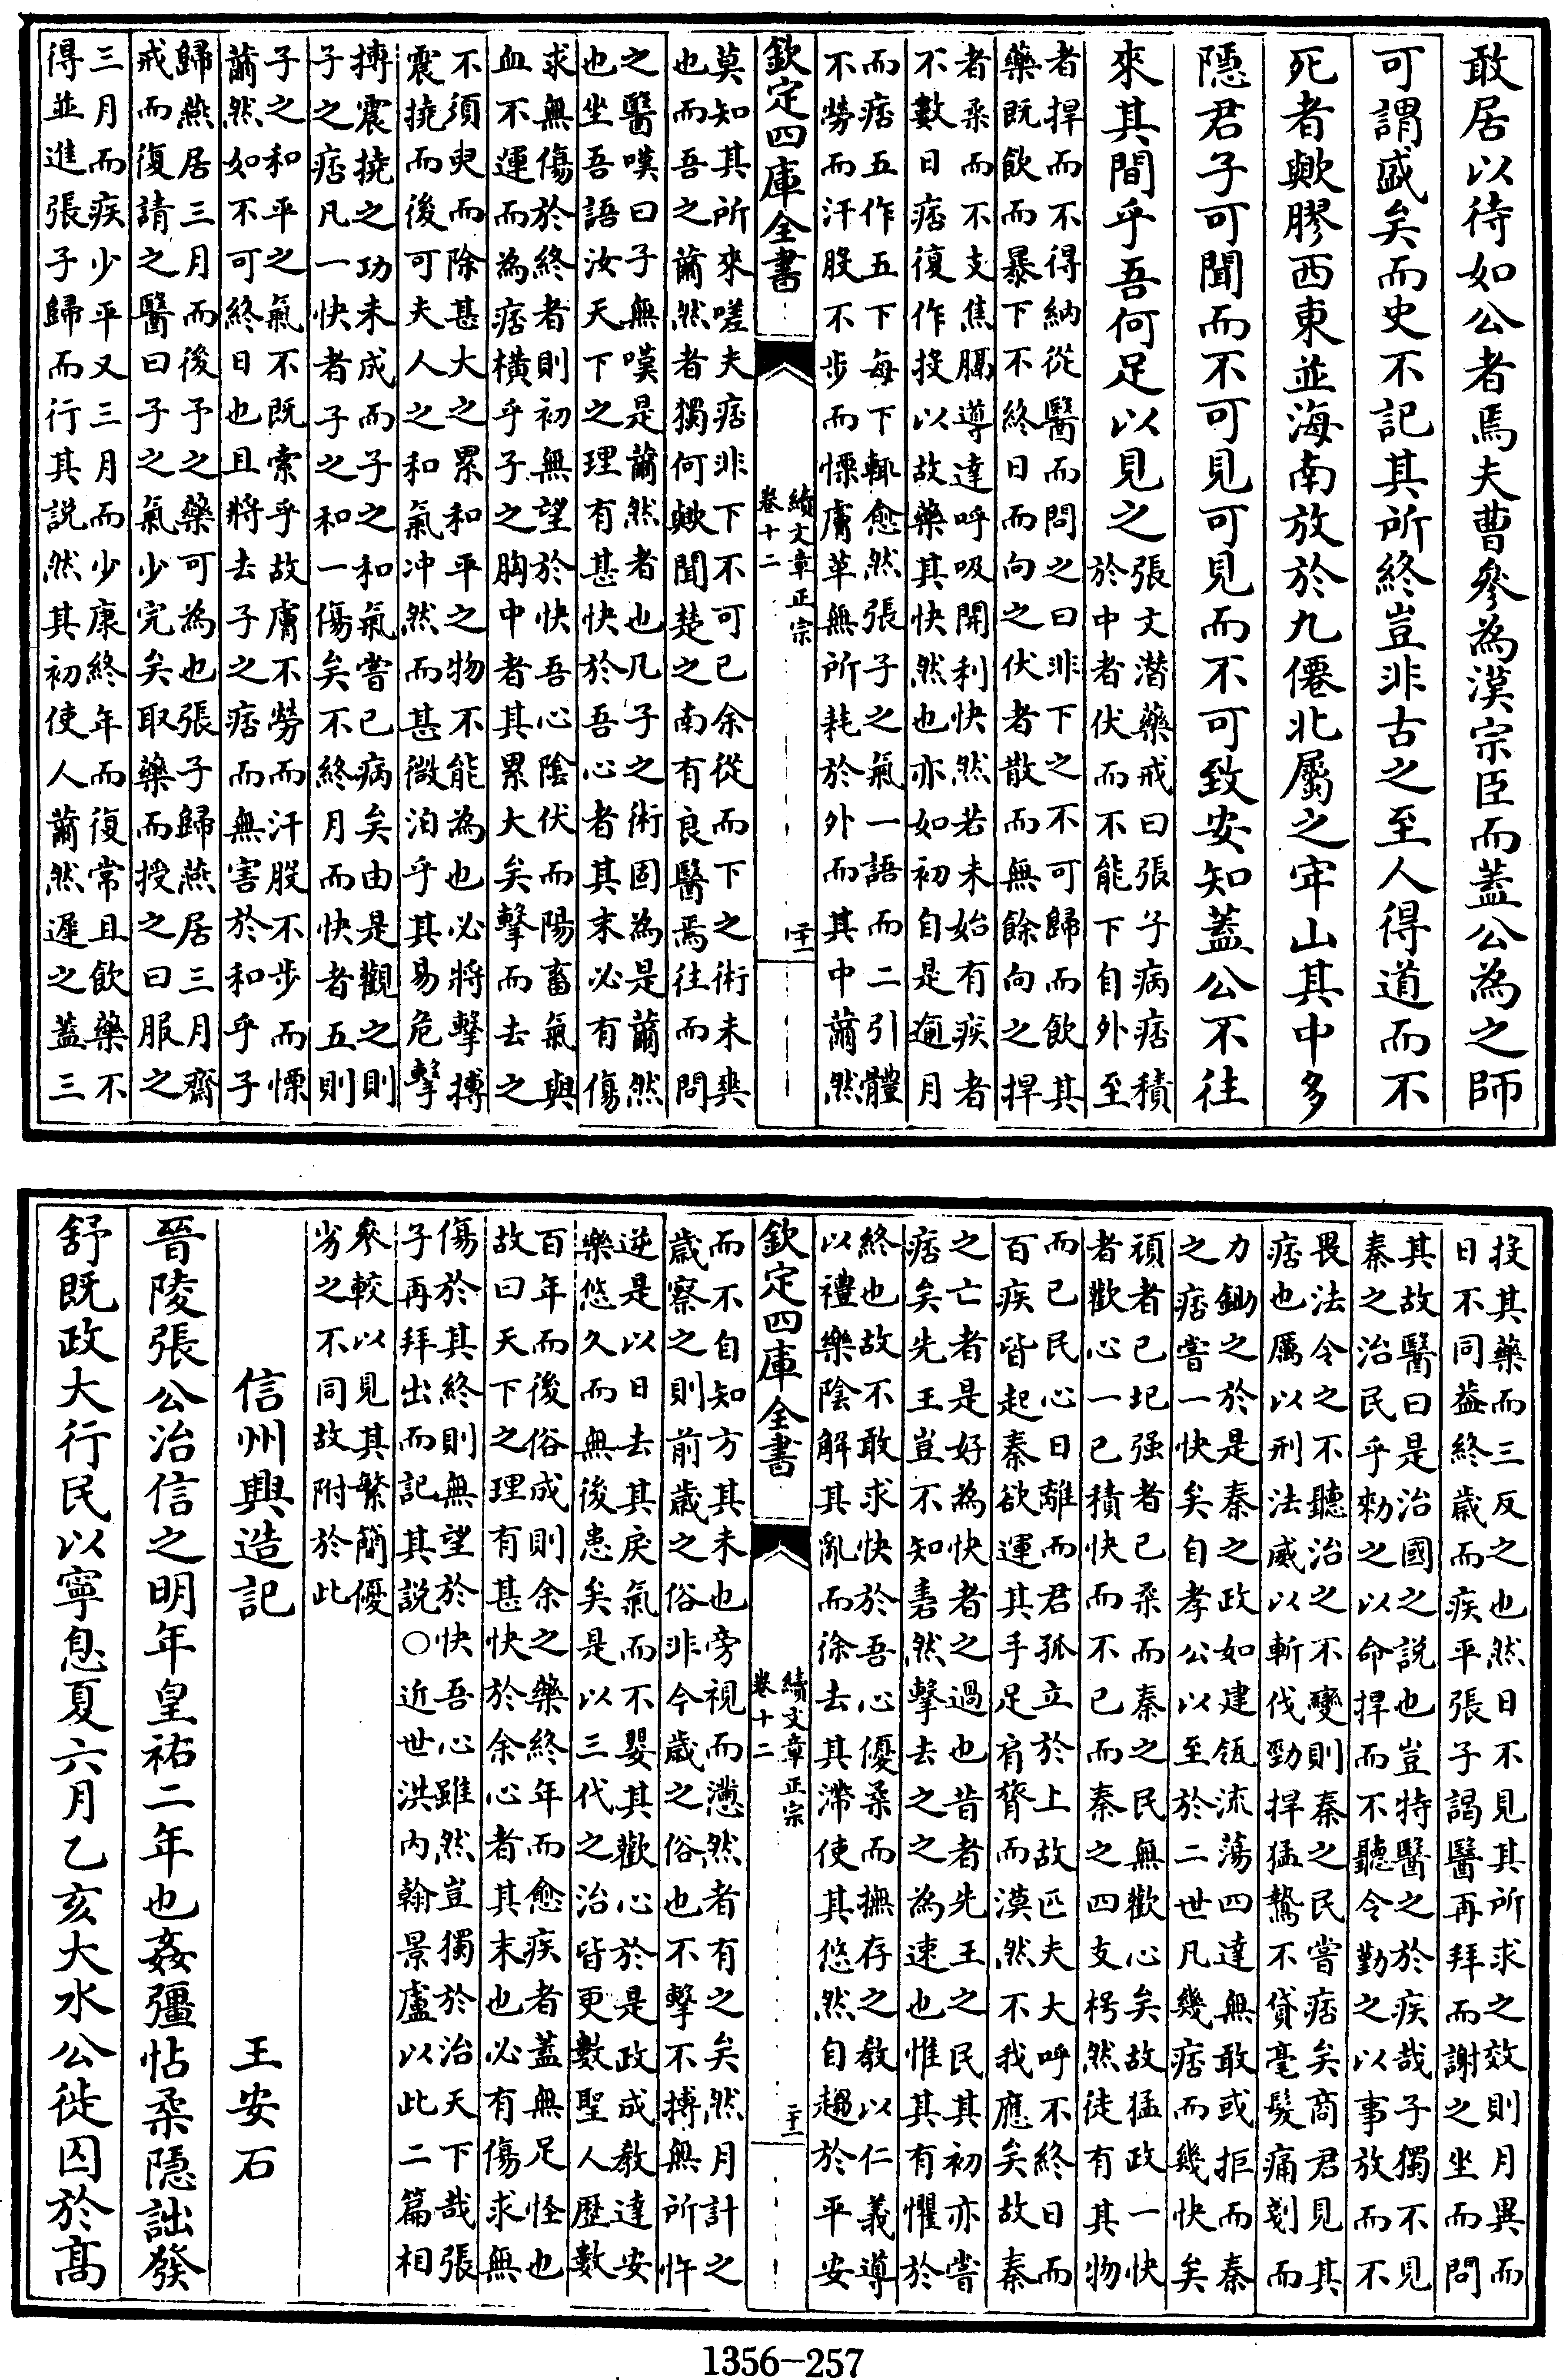 敢居以待如公者焉夫曹參為漢宗臣而蓋公為之師
可謂盛矣而史不記其所終豈非古之至人得道而不
死者歟膠西東並海南放於九僊北屬之牢山其中多
隱君子可聞而不可見可見而不可致安知蓋公不往
來其間乎吾何足以見之
張文潛藥戒曰張子病痞積
於中者伏而不能下自外至
者捍而不得納從醫而問之曰非下之不可歸而飲其
藥既飲而暴下不終日而向之伏者散而無餘向之捍
者柔而不支焦膈導達呼吸開利快然若未始有疾者
不數日痞復作投以故藥其快然也亦如初自是逾月
而痞五作五下每下輒愈然張子之氣一語而二引體
不勞而汗股不步而慄膚革無所耗於外而其中薾然
欽定四庫全書
續文章正宗
卷十二
二十一
莫知其所來嗟夫痞非下不可已余從而下之術未爽
也而吾之薾然者獨何歟聞楚之南有良醫焉往而問
之醫嘆曰子無嘆是薾然者也凡子之術固為是薾然
也坐吾語汝天下之理有甚快於吾心者其末必有傷
求無傷於終者則初無望於快吾心陰伏而陽畜氣與
血不運而為痞橫乎子之胸中者其累大矣擊而去之
不須臾而除甚大之累和平之物不能為也必將擊搏
震撓而後可夫人之和氣冲然而甚微泊乎其易危擊
搏震撓之功未成而子之和氣嘗已病矣由是觀之則
子之痞凡一快者子之和一傷矣不終月而快者五則
子之和平之氣不既索乎故膚不勞而汗股不步而慄
薾然如不可終日也且將去子之痞而無害於和乎子
歸燕居三月而後予之藥可為也張子歸燕居三月齋
戒而復請之醫曰子之氣少完矣取藥而授之曰服之
三月而疾少平又三月而少康終年而復常且飲藥不
得並進張子歸而行其説然其初使人薾然遲之蓋三
投其藥而三反之也然日不見其所求之效則月異而
日不同葢終歲而疾平張子謁醫再拜而謝之坐而問
其故醫曰是治國之説也豈特醫之於疾哉子獨不見
秦之治民乎勑之以命捍而不聽令勤之以事放而不
畏法令之不聽治之不變則秦之民嘗痞矣商君見其
痞也厲以刑法威以斬伐勁捍猛鷙不貸毫髮痛剗而
力鋤之於是秦之政如建瓴流蕩四達無敢或拒而秦
之痞嘗一快矣自孝公以至於二世凡幾痞而幾快矣
頑者已圮强者已柔而秦之民無歡心矣故猛政一快
者歡心一已積快而不已而秦之四支枵然徒有其物
而已民心日離而君孤立於上故匹夫大呼不終日而
百疾皆起秦欲運其手足肩膂而漠然不我應矣故秦
之亡者是好為快者之過也昔者先王之民其初亦嘗
痞矣先王豈不知砉然擊去之之為速也惟其有懼於
終也故不敢求快於吾心優柔而撫存之教以仁義導
以禮樂陰解其亂而徐去其滯使其悠然自趨於平安
欽定四庫全書
續文章正宗
卷十二
二十二
而不自知方其未也旁視而懣然者有之矣然月計之
歲察之則前歲之俗非今歲之俗也不擊不搏無所忤
逆是以日去其戾氣而不嬰其歡心於是政成教達安
樂悠久而無後患矣是以三代之治皆更數聖人歷數
百年而後俗成則余之藥終年而愈疾者蓋無足怪也
故曰天下之理有甚快於余心者其末也必有傷求無
傷於其終則無望於快吾心雖然豈獨於治天下哉張
子再拜出而記其説○近世洪内翰景盧以此二篇相
參較以見其繁簡優
劣之不同故附於此
信州興造記
王安石
晉陵張公治信之明年皇祐二年也姦彊帖柔隱詘發
舒既政大行民以寧息夏六月乙亥大水公徙囚於髙
1356-257